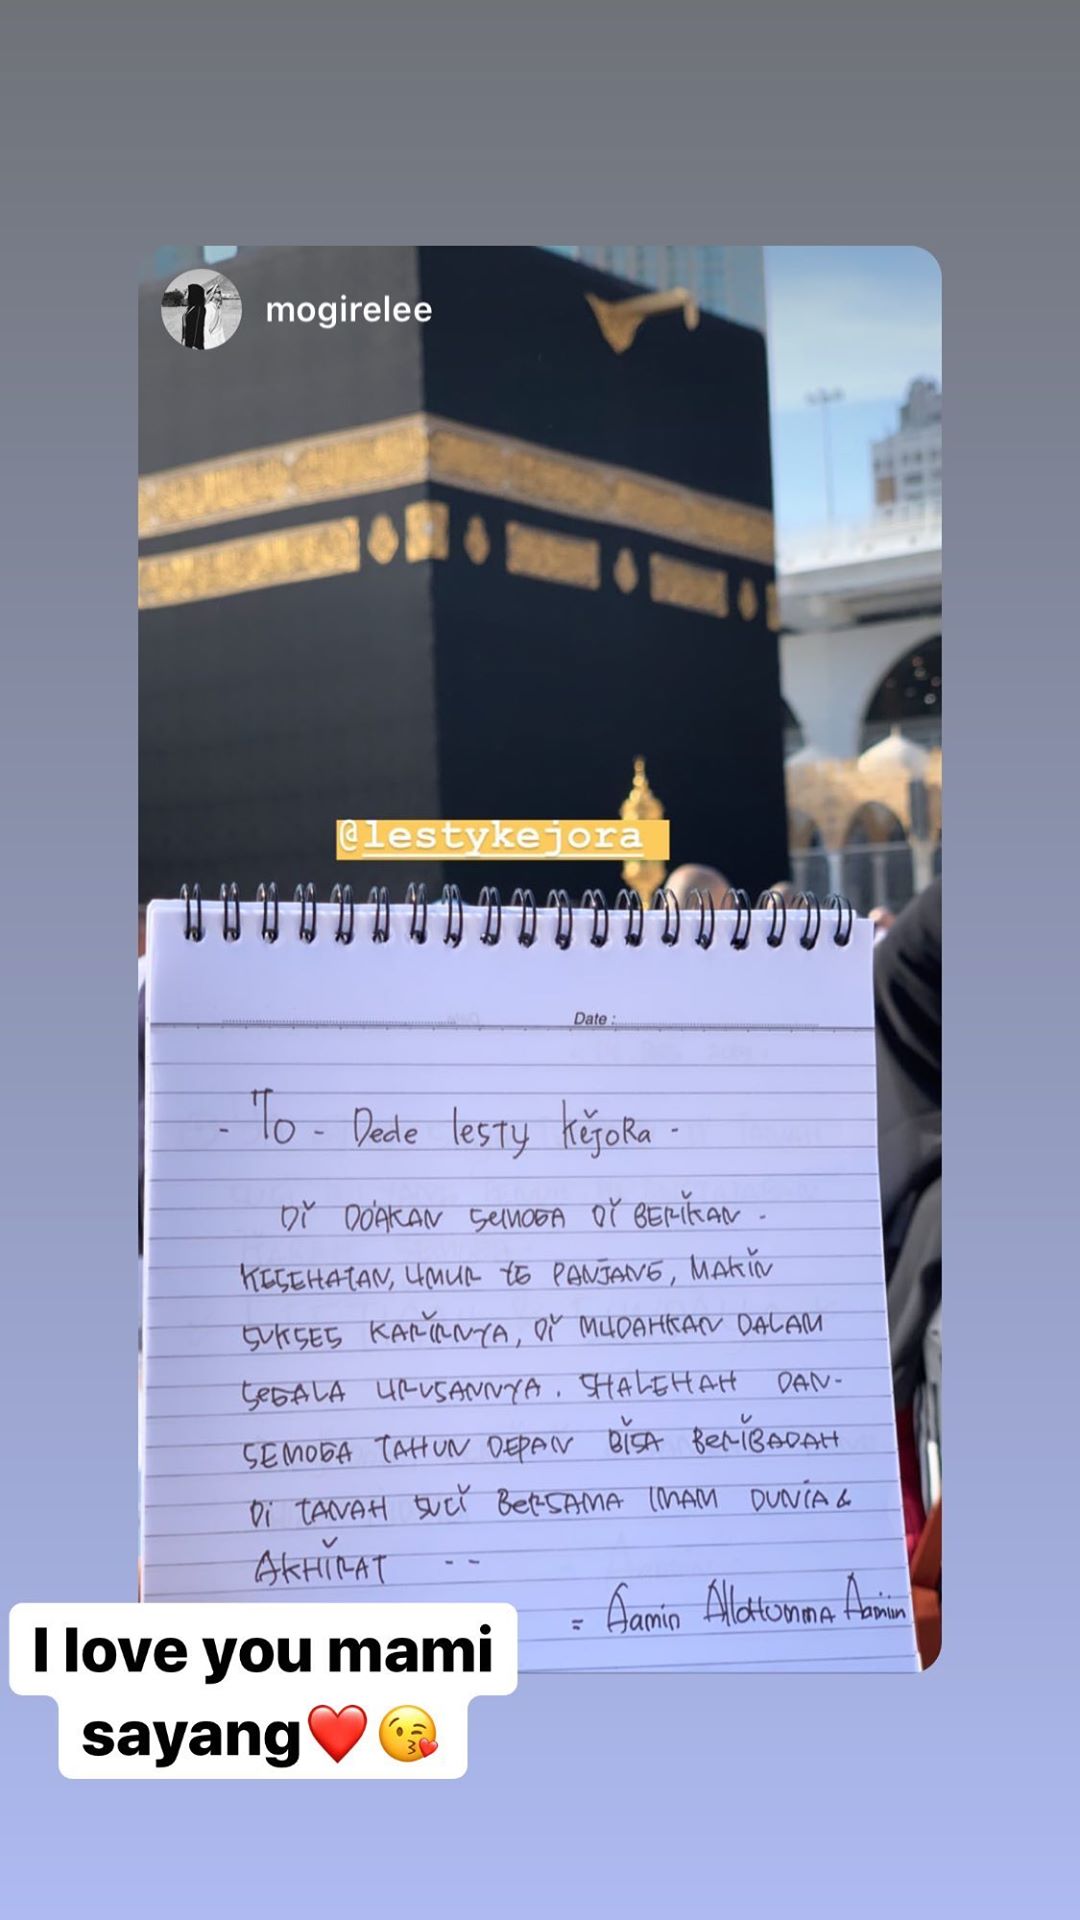 mogirelee
@lestykejora
Date :
- To - Dede lesty kejora -
DI DO'AKAN SEMOGA DI BERIKAN -
KESEHATAN, UMUR YG PANJANG, MAKIN
SUKSES KARIRNYA, DI MUDAHKAN DALAM
SEGALA URUSANNYA. SHALEHAH DAN-
SEMOGA TAHUN DEPAN BISA BERIBADAH
DI TANAH SUCI BERSAMA IMAM DUNIA &
AKHIRAT --
= Aamin Allahumma Aamiin
I love you mami
sayang❤️😘